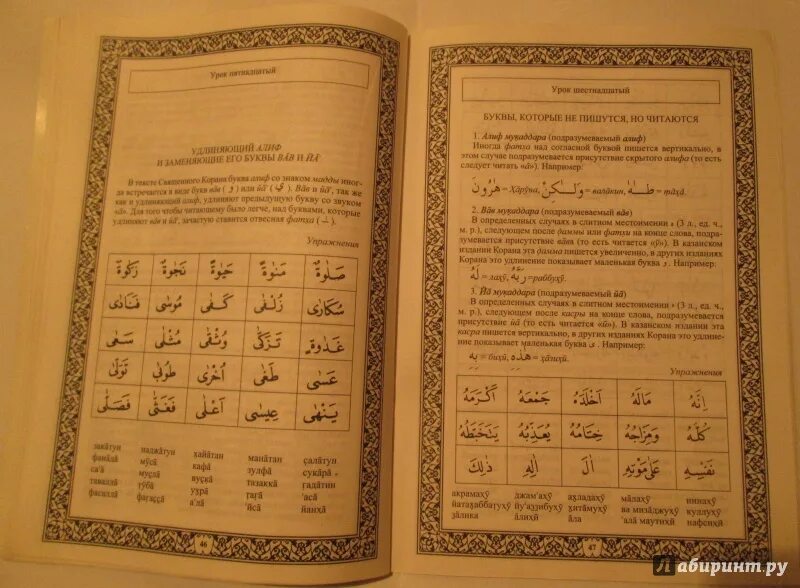 Урок пятнадцатый
УДЛИНЯЮЩИЙ АЛИФ
И ЗАМЕНЯЮЩИЕ ЕГО БУКВЫ ВĀВ И ЙĀ'
В тексте Священного Корана буква алиф со знаком мадды иног-
да встречается в виде букв вāв ( و ) или йā' ( ي ). Вāв и йā', так же
как и удлиняющий алиф, удлиняют предыдущую букву со звуком
«ā». Для того чтобы читающему было легче, над буквами, которые
удлиняют вāв и йā', зачастую ставится отвесная фатха ( ـٰ ).
Упражнения
صَلٰوةٌ مَنٰوةٌ حَيٰوةٌ نَجٰوةٌ زَكٰوةٌ
سُكَارٰى زُلْفٰى كَفٰى مُوسٰى فَنَادٰى
غَدٰوةٍ تَزَكّٰى وُثْقٰى مُثْلٰى سَعٰى
عَسٰى طَغٰى اُخْرٰى طُوبٰى تَوَلّٰى
يَنْهٰى عِيسٰى اَعْلٰى فَغَشّٰى فَصَلّٰى
закāтун наджāтун хайāтун манāтун салāтун
фанāдā мӯсā кафā зулфā сукāрā
са'ā муслā вускā тазаккā гадāтин
таваллā тӯбā ухрā тагā 'асā
фасаллā фагашшā а'лā 'ӣсā йанхā
46
Урок шестнадцатый
БУКВЫ, КОТОРЫЕ НЕ ПИШУТСЯ, НО ЧИТАЮТСЯ
1. Алиф муқаддара (подразумеваемый алиф)
Иногда фатха над согласной буквой пишется вертикально, в
этом случае подразумевается присутствие скрытого алифа (то есть
следует читать «ā»). Например:
هٰرُونَ = хāрӯна, وَلٰكِنْ = валāкин, طٰهٰ = тāхā.
2. Вāв муқаддара (подразумеваемый вāв)
В определенных случаях в слитном местоимении ه (3 л., ед. ч.,
м. р.), следующем после даммы или фатхи на конце слова, подра-
зумевается присутствие вāва (то есть читается «ӯ»). В казанском
издании Корана эта дамма пишется увеличенно, в других изданиях
Корана это удлинение показывает маленькая буква و. Например:
لَهُ = лахӯ, رَبُّهُ = раббухӯ.
3. Йā муқаддара (подразумеваемый йā)
В определенных случаях в слитном местоимении ه (3 л., ед. ч.,
м. р.), следующем после касры на конце слова, подразумевается
присутствие йā (то есть читается «ӣ»). В казанском издании эта
касра пишется вертикально, в других изданиях Корана это удлине-
ние показывает маленькая буква ى. Например:
بِهٖ = бихӣ, هٰذِهٖ = хāзихӣ.
Упражнения
اِنَّهُ مَالَهُ اَخْلَدَهُ جَمَعَهُ اَكْرَمَهُ
كُلُّهُ وَمِزَاجُهُ خِتَامُهُ يُعَذِّبُهُ يَتَخَبَّطُهُ
نَفْسِهٖ عَلٰى مَوْتِهٖ اٰلَ اِلٰهِ ذٰلِكَ
акрамахӯ джам'ахӯ ахладахӯ мāлахӯ иннахӯ
йатахаббатухӯ йу'аззибухӯ хитāмухӯ ва мизāджухӯ куллухӯ
зāлика āлā 'алā маутихӣ нафсихӣ
47
Лабиринт.ру